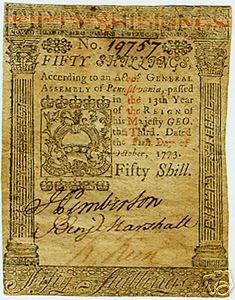 FIFTY SHILLINGS.
No. 19757
FIFTY SHILLINGS.
According to an act of GENERAL
ASSEMBLY of Pennsylvania, passed
in the 13th Year
of the REIGN of
his Majesty GEO.
the Third. Dated
the First Day of
October, 1773.
Fifty Shill.
Benj.n Marshall